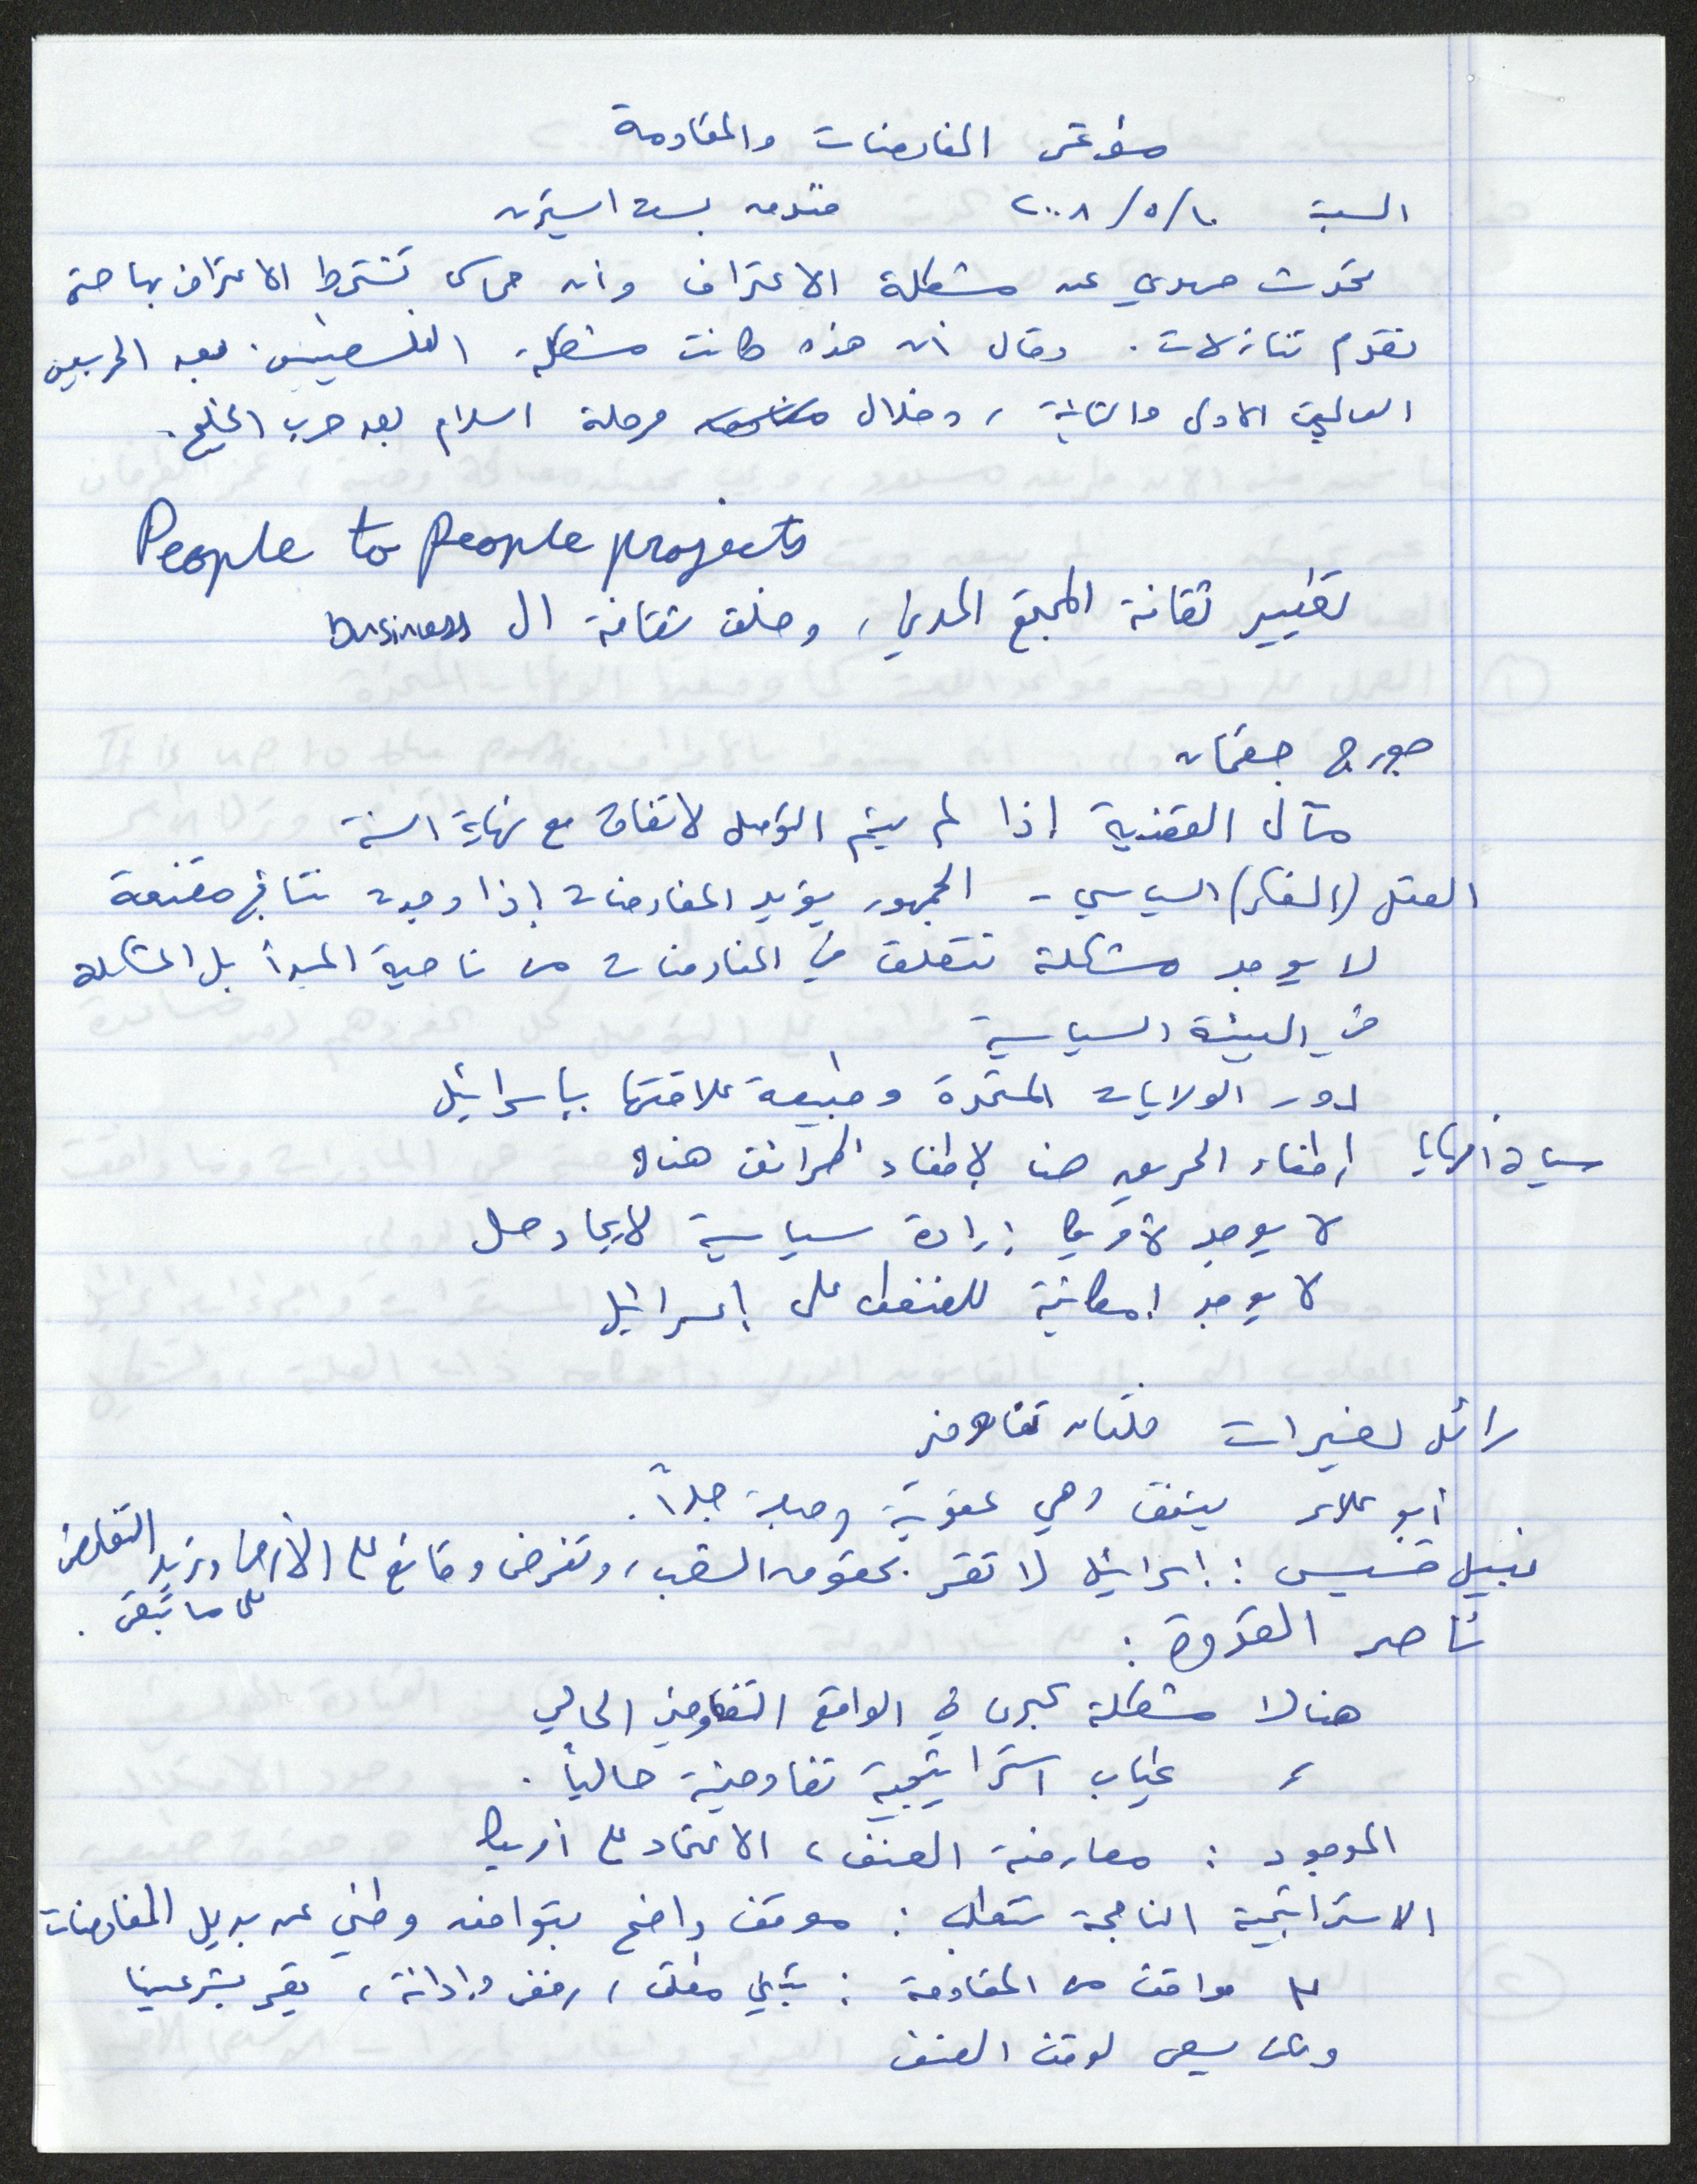 مؤتمر المفاوضات والمقاومة
السبت ٢٠٠٨/٥/١٠ فندق بست استرن
تحدث مهدي عن مشكلة الاعتراف وأن حماس تشترط الاعتراف بها حتى
تقدم تنازلات. وقال أن هذه كانت مشكلة الفلسطينيين بعد الحربين
العالميتين الاولى والثانية، وخلال مرحلة اسلام بعد حرب الخليج.
People to People projects
تغيير ثقافة المجتمع المدني، وخلق ثقافة ال business
جورج جقمان
مآل القضية إذا لم يتم التوصل لاتفاق مع نهاية السنة
العقل (الفكر) السياسي - الجمهور يؤيد المفاوضات إذا وجدت نتائج مقنعة
لا يوجد مشكلة تتعلق في المفاوضات من ناحية المبدأ بل المشكلة
في البيئة السياسية
دور الولايات المتحدة وطبيعة علاقتها بإسرائيل
سياسة أمريكا إطفاء الحريق هنا لإطفاء الحرائق هناك
لا يوجد لأمريكا إرادة سياسية لايجاد حل
لا يوجد امكانية للضغط على إسرائيل
رائل لفيرات فلتان تفاوضي
أبو علاء ينفذ وهي عفوية وصلبة جداً.
نبيل قسيس: إسرائيل لا تقر بحقوق الشعب، وتفرض وقائع على الأرض وتريد التفاوض
على ما تبقى.
ناصر القدوة:
هناك مشكلة كبرى في الواقع التفاوضي الحالي
، غياب استراتيجية تفاوضية حالياً.
الموجود: معارضة العنف، الاعتماد على أمريكا
الاستراتيجية الناجحة تتطلب: موقف واضح بتوافق وطني عن بديل المفاوضات
٣ مواقف من المقاومة: تبني مطلق، رفض وإدانة، يقر بشرعيتها
ولكن يسعى لوقف العنف